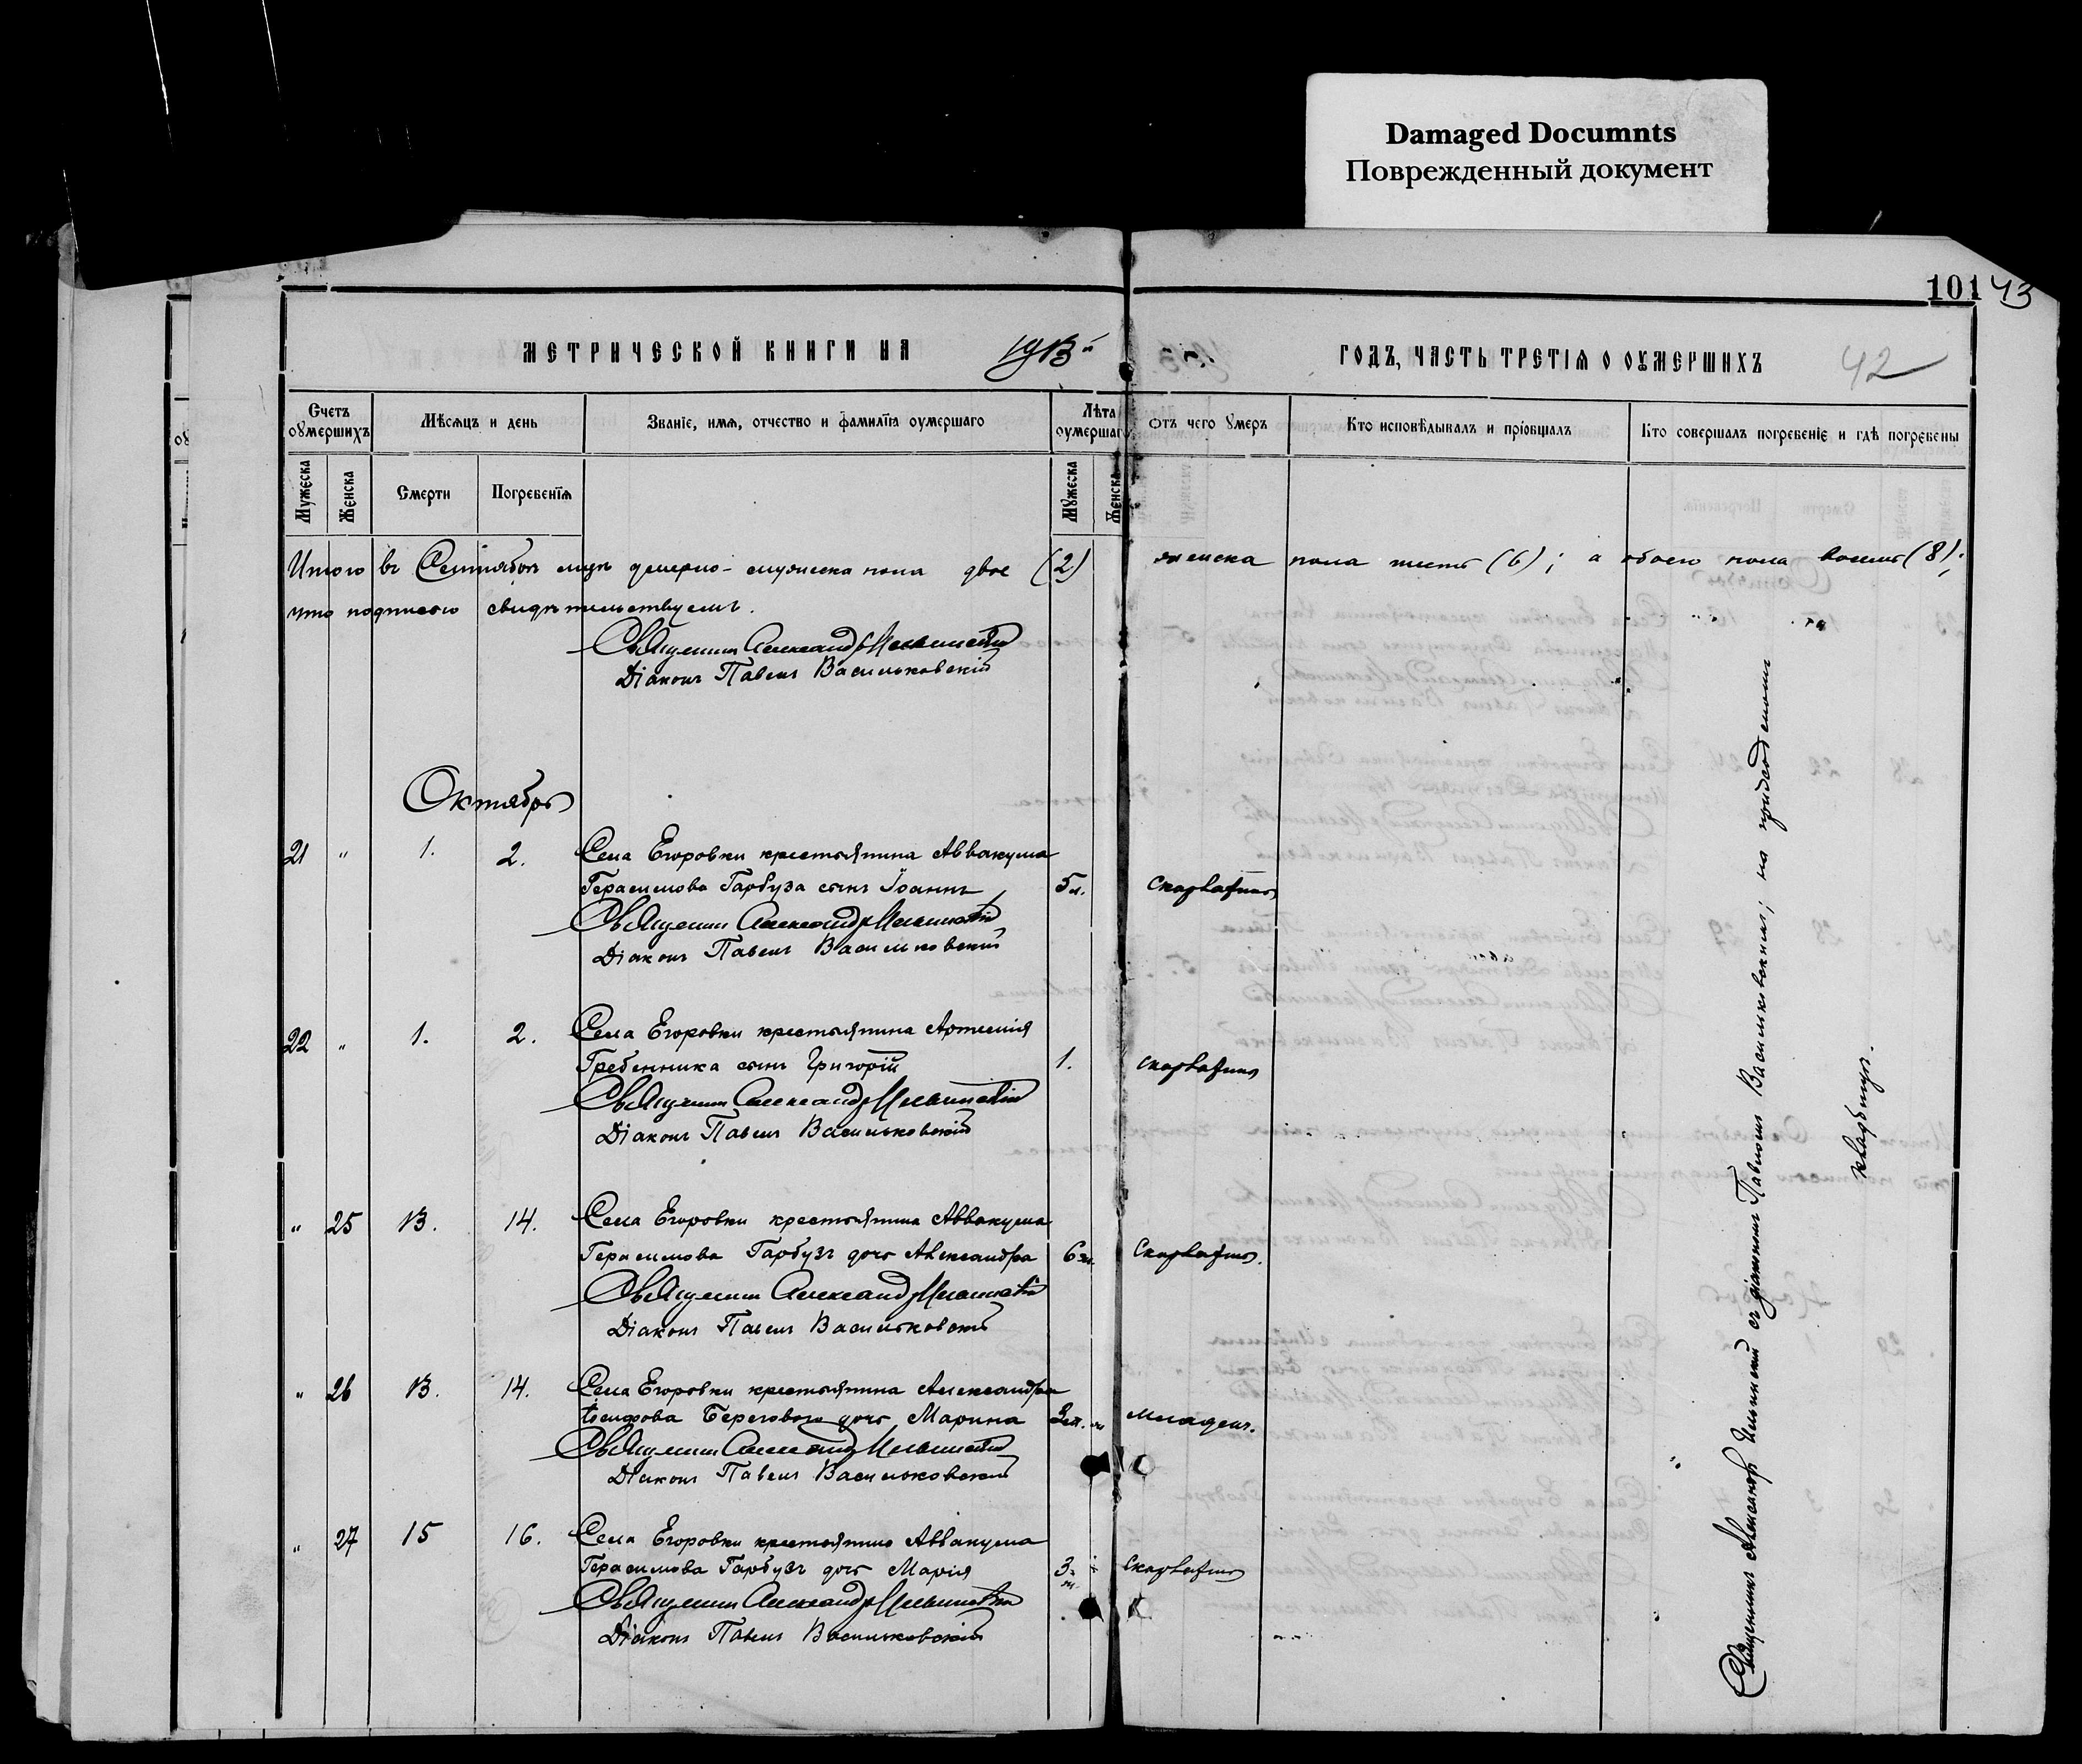 Damaged Documnts
Поврежденный документ
101 43
МЕТРИЧЕСКОЙ КНИГИ НА 1913й ГОДЪ, ЧАСТЬ ТРЕТІЯ О ОУМЕРШИХЪ 42
Счетъ оумершихъ
Мѣсяцъ и день
Званіе, имя, отчество и фамилія оумершаго
Лѣта оумершаго
Отъ чего умеръ
Кто исповѣдывалъ и пріобщалъ
Кто совершалъ погребеніе и гдѣ погребены
Мужеска
Женска
Смерти
Погребенія
Мужеска
Женска
Итого въ Сентябрѣ мцѣ умерло - мужеска пола двое (2) женска пола шесть (6); а обоего пола восемь (8);
что подписью свидѣтельствуемъ.
Священникъ Александръ
Діаконъ Павелъ Васильковскій
Октябрь
21 " 1. 2. Села Егоровки крестьянина Аввакума
Герасимова Гарбуза сынъ Іоаннъ 5 л. скарлатина
Священникъ Александръ
Діаконъ Павелъ Васильковскій
22 " 1. 2. Села Егоровки крестьянина Артемія
Гребенника сынъ Григорій 1. скарлатина
Священникъ Александръ
Діаконъ Павелъ Васильковскій
" 25 13. 14. Села Егоровки крестьянина Аввакума
Герасимова Гарбузъ дочь Александра 6 Скарлатина.
Священникъ Александръ
Діаконъ Павелъ Васильковскій
" 26 13. 14. Села Егоровки крестьянина Александра
Іосифова Берегового дочь Марина 3 младен.
Священникъ Александръ
Діаконъ Павелъ Васильковскій
" 27 15 16. Села Егоровки крестьянина Аввакума
Герасимова Гарбузъ дочь Марія 3 скарлатина
Священникъ Александръ
Діаконъ Павелъ Васильковскій
Священникъ Александръ съ діакономъ Павломъ Васильковскимъ; на приходскомъ
кладбищѣ.